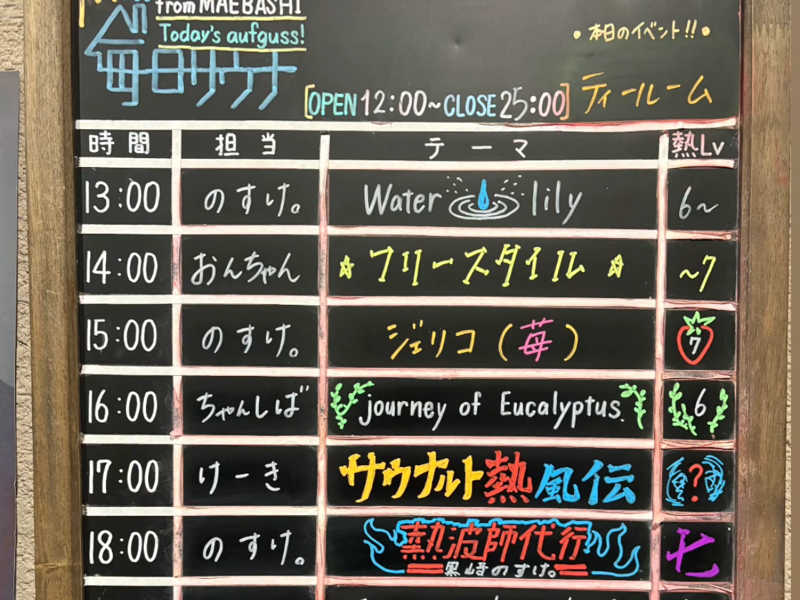 from MAEBASHI
Today's aufguss!
毎日サウナ
•本日のイベント!!•
[OPEN 12:00~CLOSE 25:00] ティールーム
時間 担当 テーマ 熱Lv
13:00 のすけ。 Water lily 6~
14:00 おんちゃん ☆フリースタイル☆ ~7
15:00 のすけ。 ジェリコ(苺) 7
16:00 ちゃんしば journey of Eucalyptus. 6
17:00 けーき サウナルト熱風伝 ?
18:00 のすけ。 熱波師代行 七
黒崎のすけ。